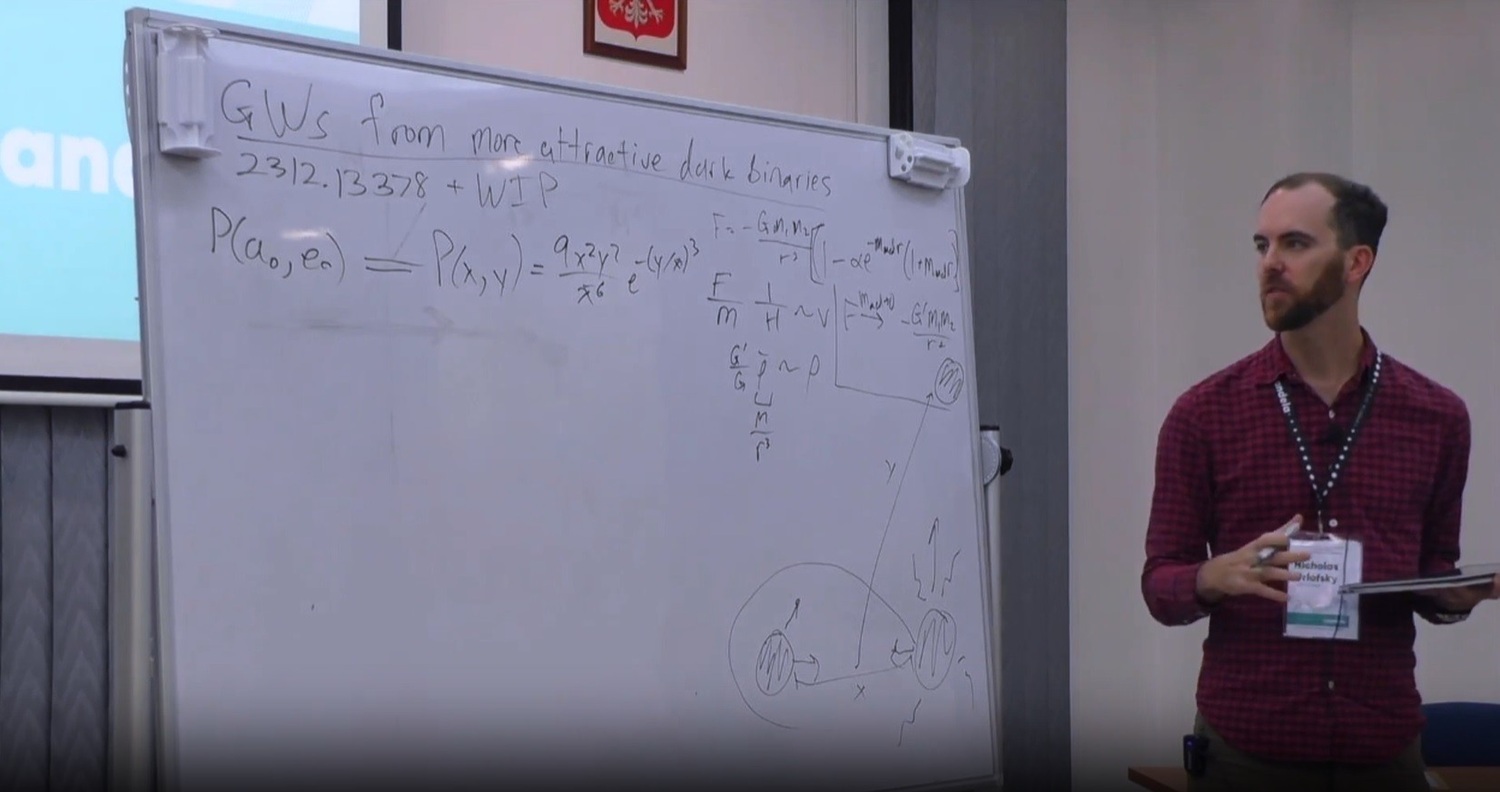 and
GWs from more attractive dark binaries
2312.13378 + WIP
P(a₀, e₀) = P(x,y) = 9x²y²/x̄⁶ e^-(y/x)³
F = -Gm₁m₂/r² [1 - αe^-m_med r (1+m_med r)]
F/m 1/H ~ v
m_med→0 → -G'm₁m₂/r²
G'/G ρ̄ ~ ρ
M/r³
y
x
Nicholas